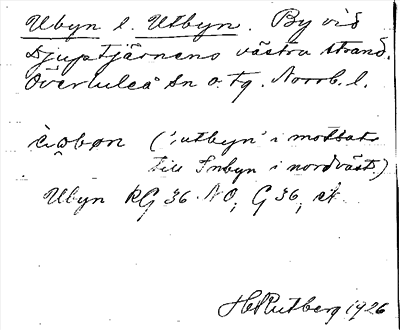 Ubyn l. Utbyn. By vid
Djuptjärnens västra strand.
Överluleå sn o. tg. Norrb. l.
(: utbyn' i motsats
till Inbyn i nordväst.)
Ubyn RG 36. NO; G 36;
H Rutberg 1926